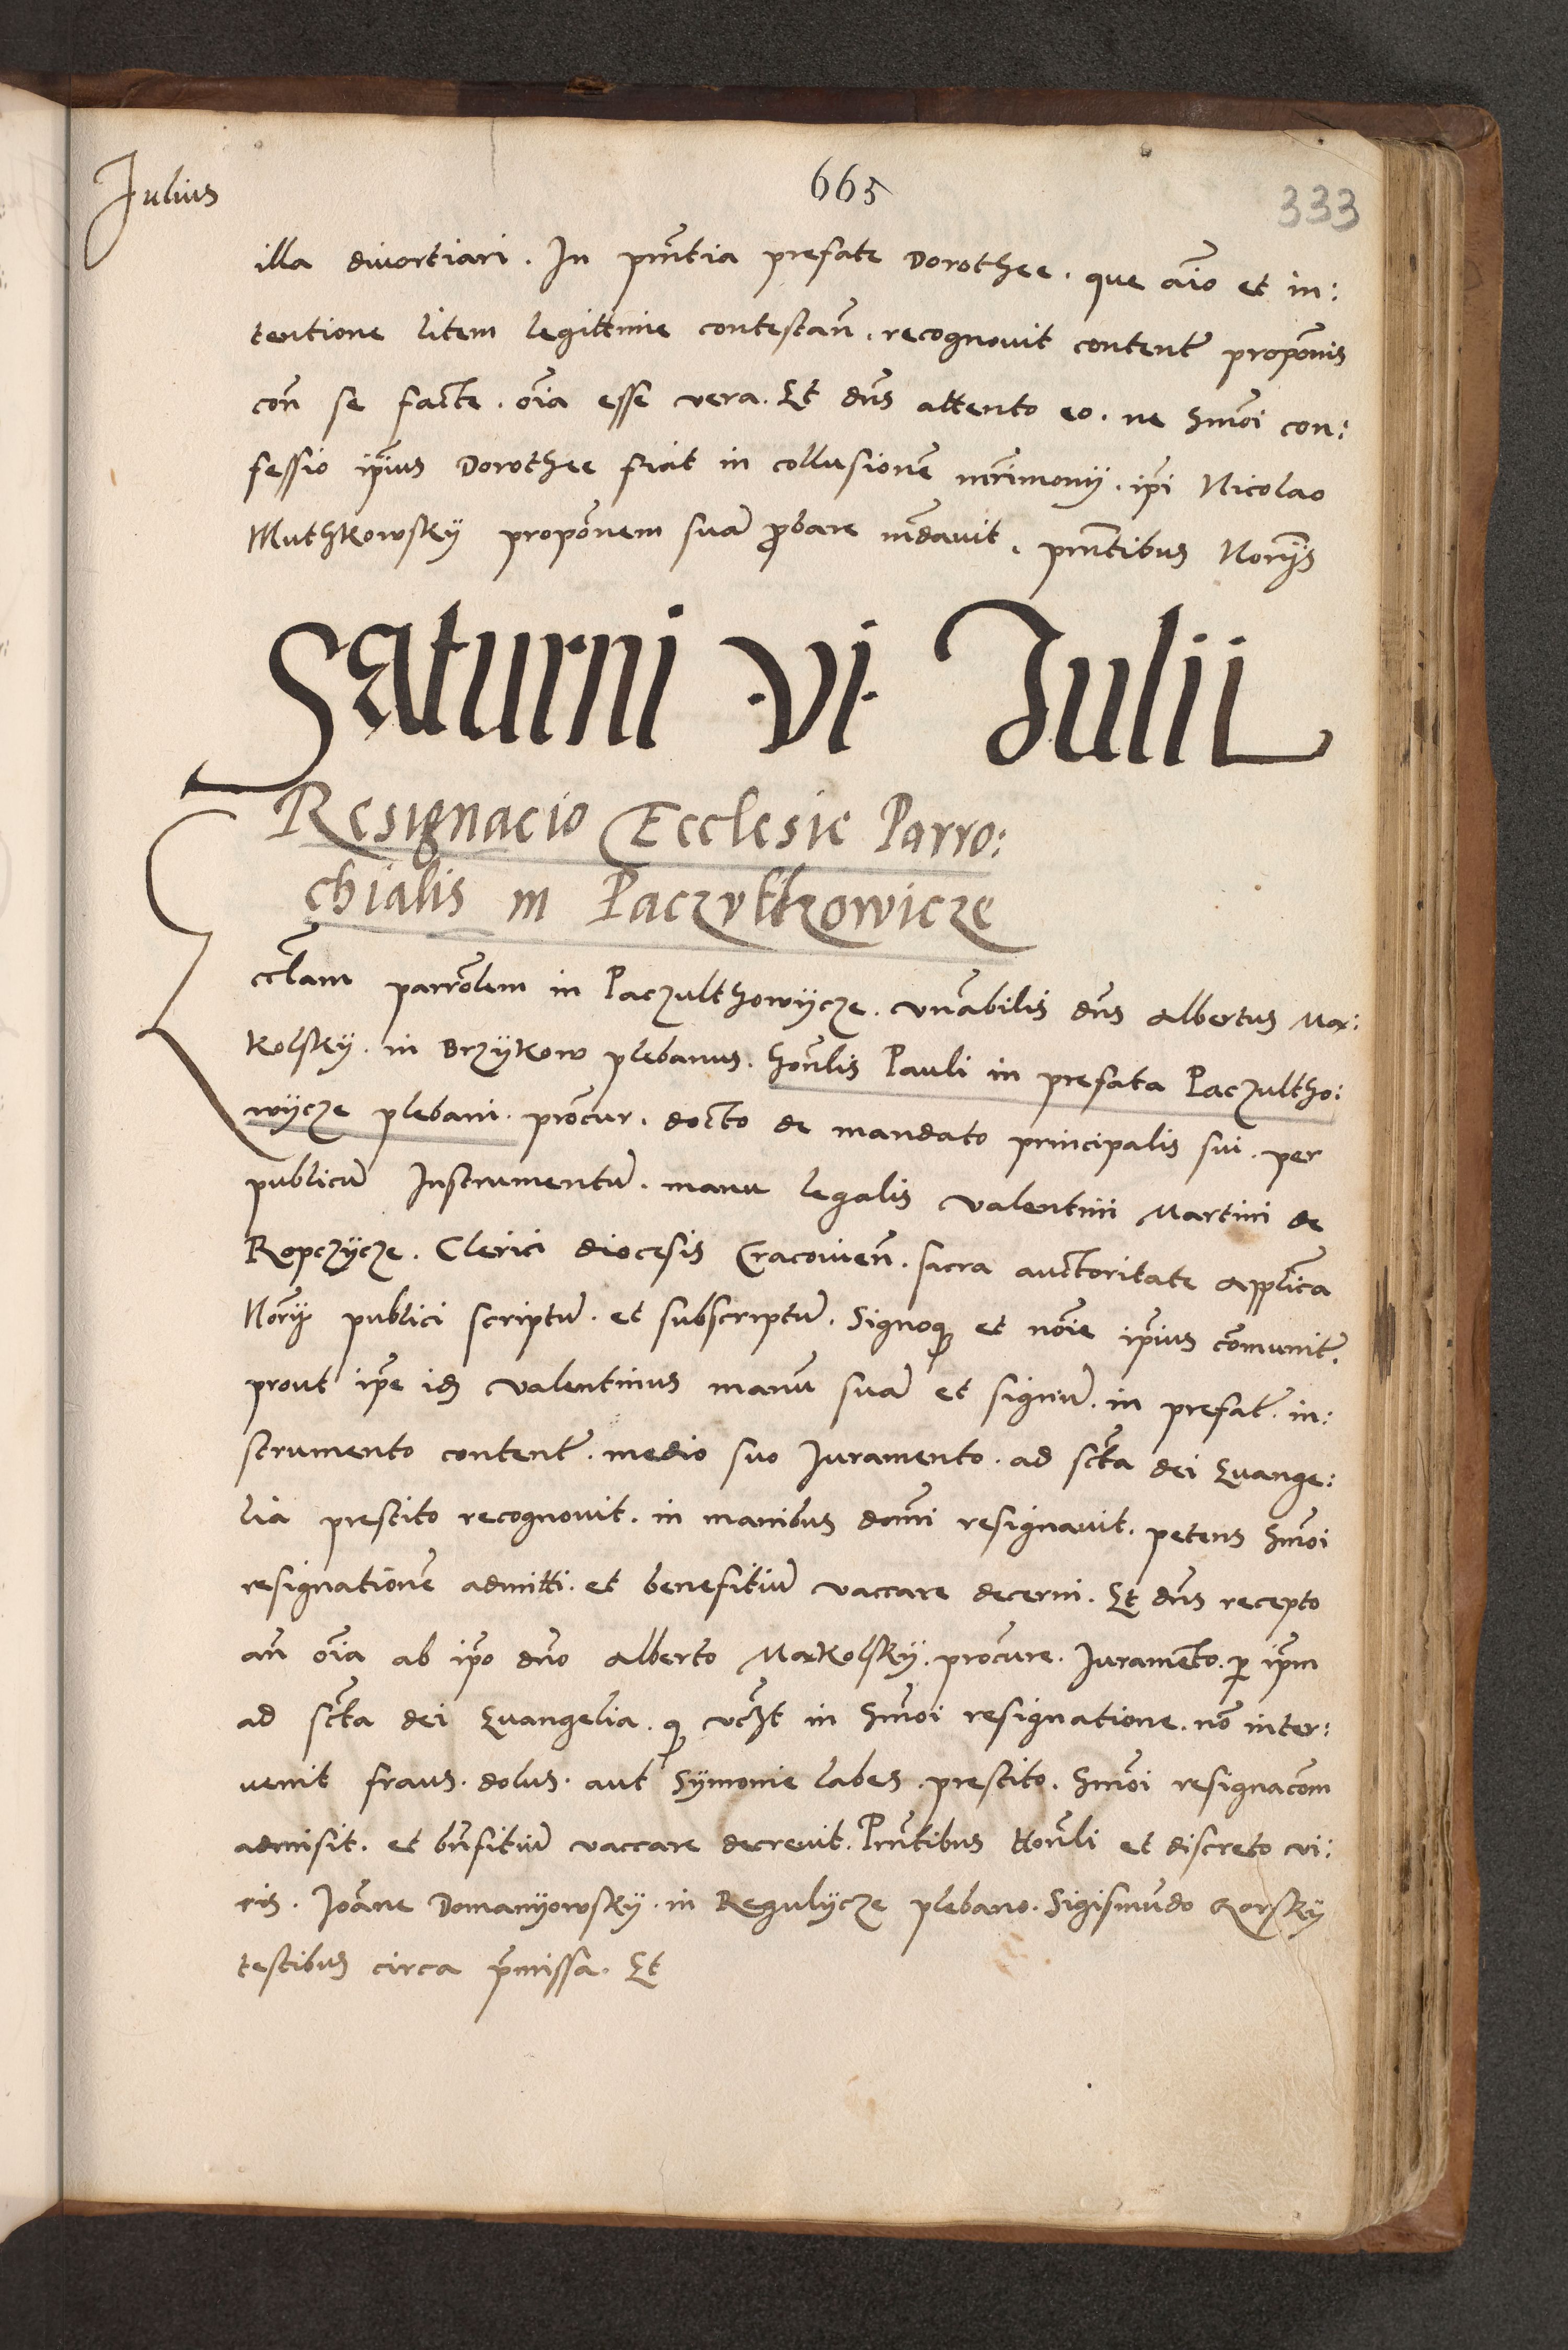 Julius
665
333
illa divortiari. In pn̄tia prefate Dorothee. que aīo et in:
tentione litem legittime contestan̄. recognovit content̄ propōnis
con̄ se facte. oīa esse vera. Et dn̄s attento eo. ne hm̄oi con:
fessio ip̄ius Dorothee fiat in collusionē mr̄imonij. ip̄i Nicolao
Muthkowsky propōnem suā ꝓbare mādavit. pn̄tibus Norijs
Saturni ·VI· Julii
Resignacio Ecclesie Parro:
chialis in Paczultkowicze
Eccl̄am parrōlem in Paczulthowycze. vn̄abilis dn̄s Albertus Mar:
kolsky. in Brzykow plebanus. hon̄lis Pauli in prefata Paczultho:
wycze plebani. procur. docto de mandato principalis sui. per
publicū Instrumentū. manu legalis Valentini Martini de
Ropczycze. Clerici diocesis Cracovien̄. sacra auctoritate applīca
Norij publici scriptū. et subscriptū. Signoqꝫ et noīe ip̄ius cōmunit̄.
prout ip̄e idꝫ Valentinus manū suā et signū. in prefat̄. in:
strumento content̄. medio suo Juramento. ad sct̄a dei Evange:
lia prestito recognovit. in manibus domī resignavit. petens hm̄oi
resignationē admitti. et benefitiū vaccare decerni. Et dn̄s recepto
an̄ oīa ab ip̄o dn̄o Alberto Markolsky. procure. Juramēto. ꝑ ip̄m
ad sct̄a dei Evangelia. ꝙ vcꝫt in hm̄oi resignatione. nō inter:
uenit fraus. dolus. aut Symonie labes. prestito. hm̄oi resignacōm
admisit. et bn̄fitiū vaccare decrevit. Pn̄tibus Hon̄li et discreto vi:
ris. Joāne Domanyowsky. in Regulycze plebano. Sigismūdo Korsky
testibus circa p̄missa. Et